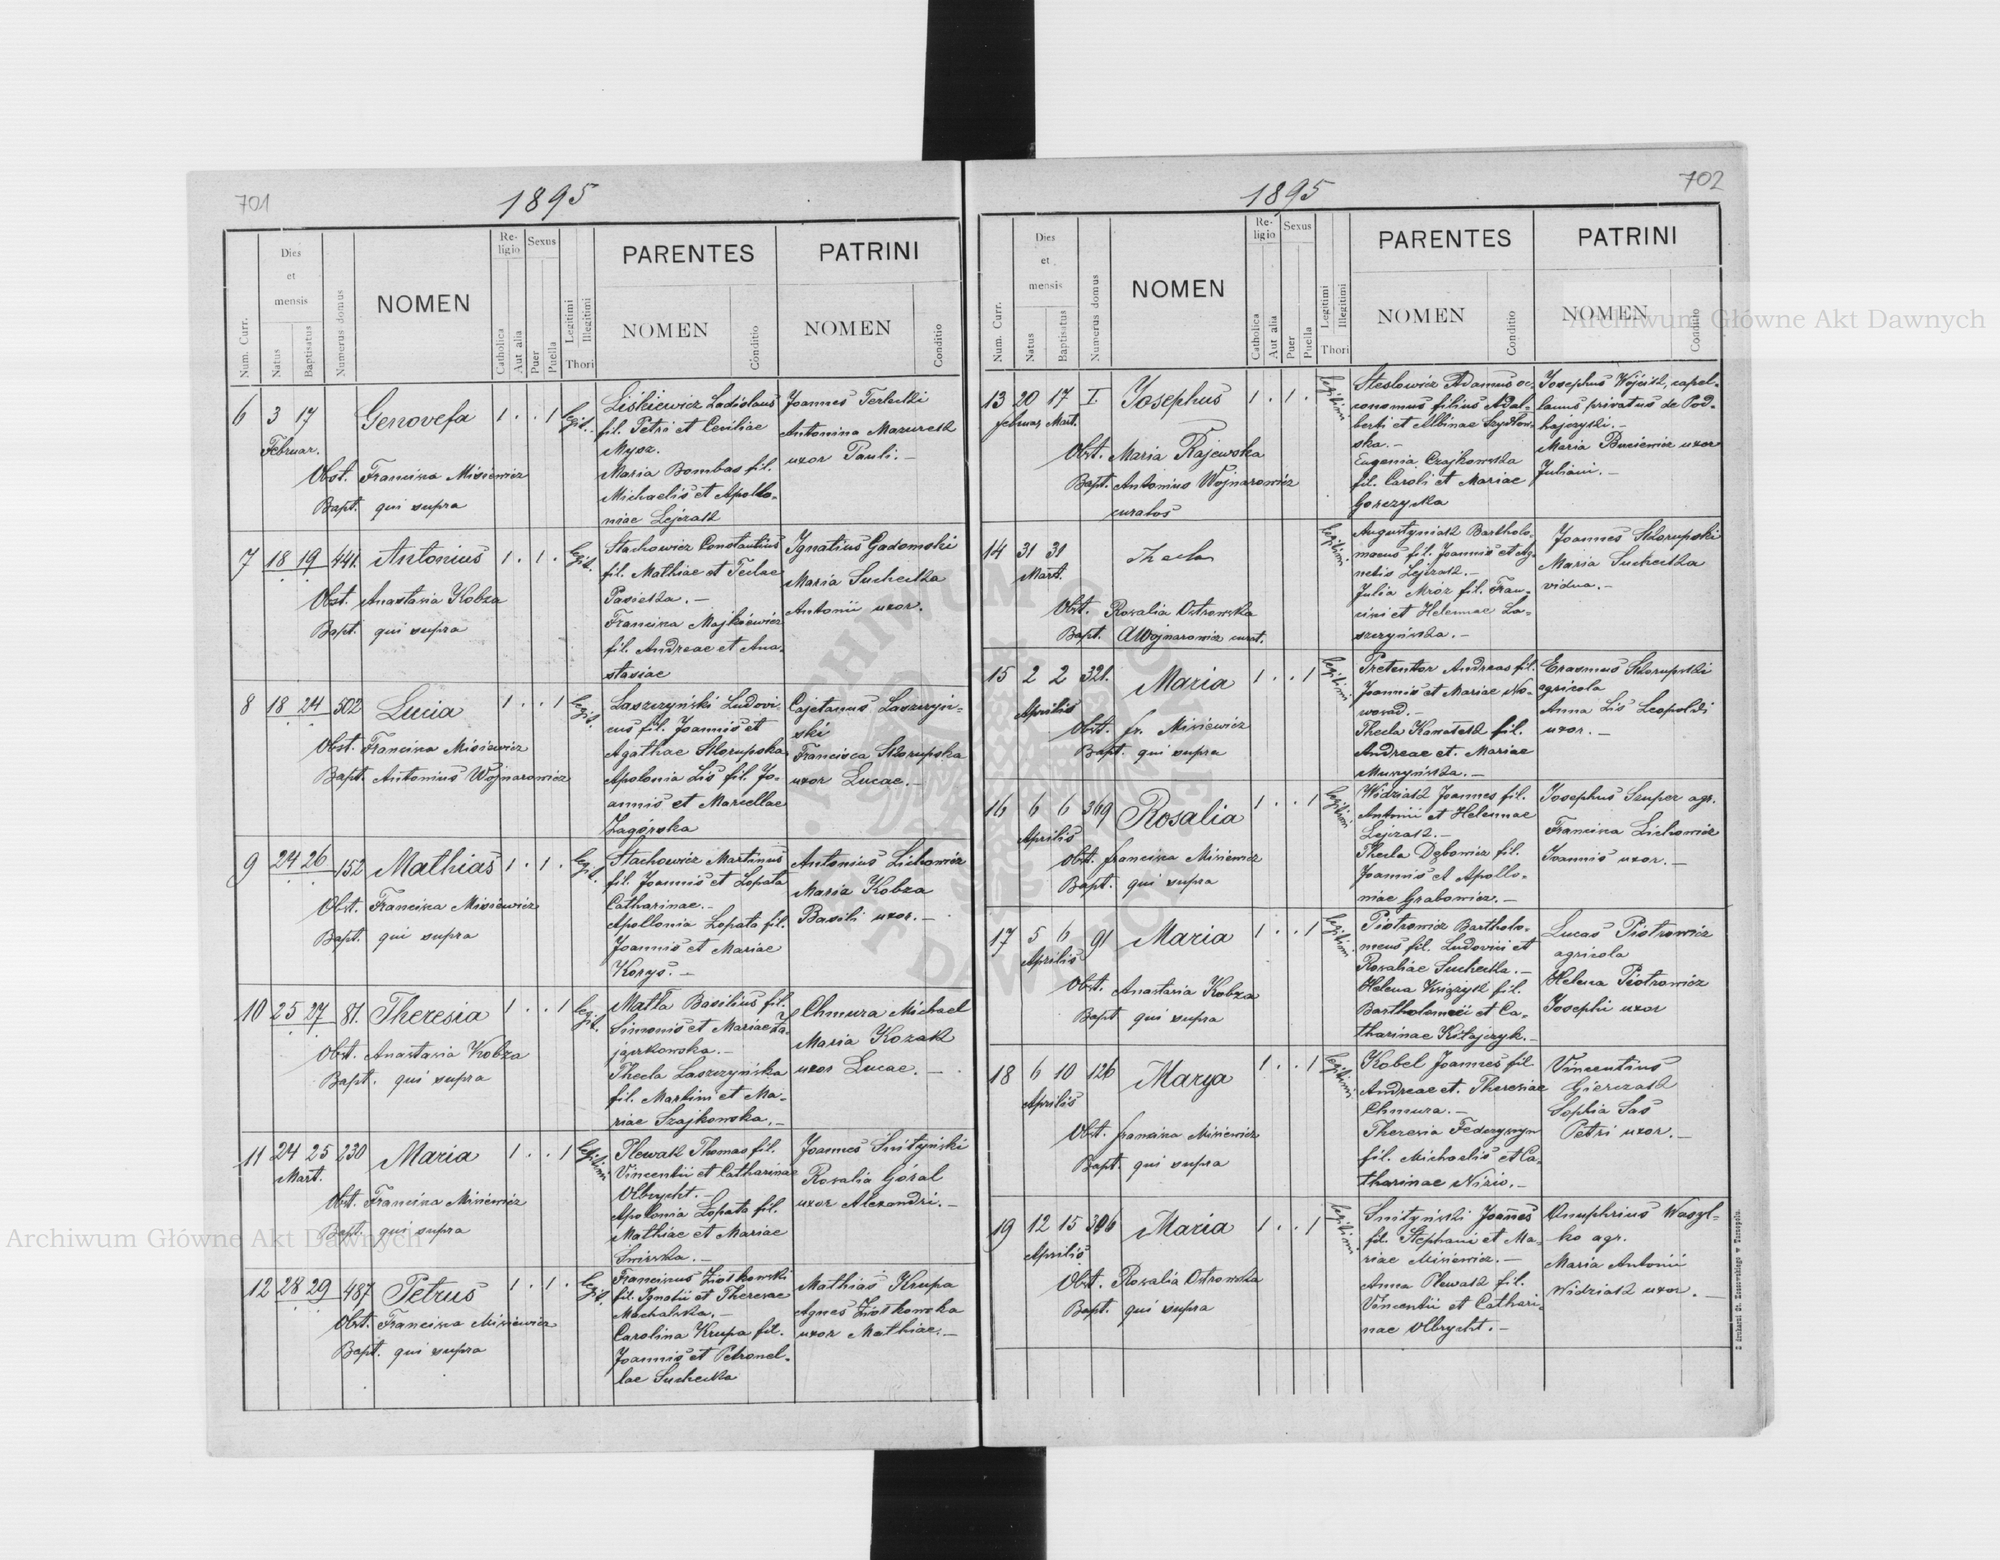 701
1895
Num. Curr.
Dies
et
mensis
Natus
Baptisatus
Numerus domus
NOMEN
Re-
ligio
Catholica
Aut alia
Sexus
Puer
Puella
Legitimi
Illegitimi
Thori
PARENTES
NOMEN
Conditio
PATRINI
NOMEN
Conditio
6 3 17 Genovefa 1 . . 1 legit.
Februar.
Obst. Francisca Misiewicz
Bapt. qui supra
Liśkiewicz Ladislaus
fil. Petri et Ceciliae
Mysz.
Maria Bombas fil.
Michaelis et Apollo-
niae Lejczak
Joannes Terlecki
Antonina Mazurek
uxor Pauli. —
7 18 19 441. Antonius 1 . 1 . legit.
Obst. Anastasia Kobza
Bapt. qui supra
Stachowicz Constantinus
fil. Mathiae et Teclae
Pasieka. —
Francisca Majkowicz
fil. Andreae et Ana-
stasiae
Ignatius Gadomski
Maria Suchecka
Antonii uxor.
8 18 24 502 Lucia 1 . . 1 legit.
Obst. Francisca Misiewicz
Bapt. Antonius Wojnarowicz
Laszczyński Ludovi-
cus fil. Joannis et
Agathae Skorupska
Apolonia Lis fil. Jo-
annis et Marcellae
Zagórska
Cajetanus Laszczyń-
ski
Francisca Skorupska
uxor Lucae. —
9 24 26 152 Mathias 1 . 1 . legit.
Obst. Francisca Misiewicz
Bapt. qui supra
Stachowicz Martinus
fil. Joannis et Lopata
Catharinae. —
Apollonia Lopata fil.
Joannis et Mariae
Korys. —
Antonius Lichowicz
Maria Kobza
Basili uxor. —
10 25 27 87. Theresia 1 . . 1 legit.
Obst. Anastasia Kobza
Bapt. qui supra
Matla Basilius fil.
Simonis et Mariae Za-
jączkowska. —
Thecla Laszczyńska
fil. Martini et Ma-
riae Szajkowska. —
Chmura Michael
Maria Kozak
uxor Lucae. —
11 24 25 230 Maria 1 . . 1 legitimi
Mart.
Obst. Francisca Misiewicz
Bapt. qui supra
Plewak Thomas fil.
Vincentii et Catharinae
Olbrycht. —
Apolonia Lopata fil.
Mathiae et Mariae
Śnieska. —
Joannes Smityński
Rosalia Góral
uxor Alexandri. —
12 28 29 487 Petrus 1 . 1 . legit.
Obst. Francisca Misiewicz
Bapt. qui supra
Franciscus Ziołkowski
fil. Ignatii et Theresae
Machalska. —
Carolina Krupa fil.
Joannis et Petronel-
lae Suchecka
Mathias Krupa
Agnes Ziołkowska
uxor Mathiae. —
702
1895
Num. Curr.
Dies
et
mensis
Natus
Baptisatus
Numerus domus
NOMEN
Re-
ligio
Catholica
Aut alia
Sexus
Puer
Puella
Legitimi
Illegitimi
Thori
PARENTES
NOMEN
Conditio
PATRINI
NOMEN
Conditio
13 20 17 I. Josephus 1 . 1 . legitimi
februar. Mart.
Obst. Maria Rajewska
Bapt. Antonius Wojnarowicz
curatos
Steslowicz Adamus oe-
conomus filius Adal-
berti et Albinae Szydłow-
ska. —
Eugenia Czajkowska
fil. Caroli et Mariae
Gorczycka
Josephus Wójcik, capel-
lanus privatus de Pod-
hajczyki. —
Maria Buciewicz uxor
Juliani. —
14 31 31 Thecla legitimi
Mart.
Obst. Rosalia Ostrowska
Bapt. AWojnarowicz curat.
Augustyniak Bartholo-
maeus fil. Joannis et Ag-
netis Lejczak. —
Julia Mróz fil. Fran-
cisci et Helenae La-
szczyńska. —
Joannes Skorupski
Maria Suchecka
vidua. —
15 2 2 321. Maria 1 . . 1 legitimi
Aprilis
Obst. fr. Misiewicz
Bapt. qui supra
Pretentor Andreas fil.
Joannis et Mariae No-
wosad. —
Thecla Kawałek fil.
Andreae et Mariae
Muszyńska. —
Erasmus Skorupski
agricola
Anna Lis Leopoldi
uxor. —
16 6 6 369 Rosalia 1 . . 1 legitimi
Aprilis
Obst. francisca Misiewicz
Bapt. qui supra
Widziak Joannes fil.
Antonii et Helenae
Lejczak. —
Thecla Dębowicz fil.
Joannis et Apollo-
niae Grabowicz. —
Josephus Szuper agr.
Francisca Lichowicz
Joannis uxor. —
17 5 6 91 Maria 1 . . 1 legitimi
Aprilis
Obst. Anastasia Kobza
Bapt qui supra
Piotrowicz Bartholo-
meus fil. Ludovici et
Rosaliae Suchecka. —
Helena Księżyk fil.
Bartholomei et Ca-
tharinae Kitajczyk. —
Lucas Piotrowicz
agricola
Helena Piotrowicz
Josephi uxor
18 6 10 126 Marya 1 . . 1 legitimi
Aprilis
Obst. francisca Misiewicz
Bapt. qui supra
Kobel Joannes fil
Andreae et Theresiae
Chmura. —
Theresia Federyszyn
fil. Michaelis et Ca-
tharinae Nizio. —
Vincentius
Gierczak
Sophia Sas
Petri uxor. —
19 12 15 396 Maria 1 . . 1 legitimi
Aprilis
Obst. Rosalia Ostrowska
Bapt. qui supra
Smityński Joannes
fil. Stephani et Ma-
riae Misiewicz. —
Anna Plewak fil.
Vincentii et Cathari-
nae Olbrycht. —
Onuphrius Wasyl-
ko agr.
Maria Antonii
Widziak uxor. —
Archiwum Główne Akt Dawnych
Archiwum Główne Akt Dawnych